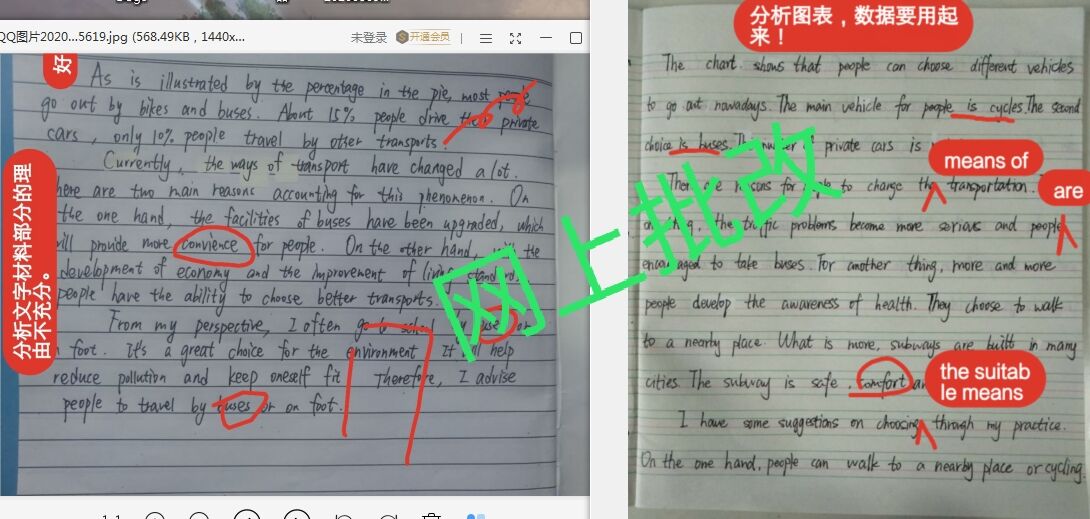 QQ图片2020...5619.jpg (568.49KB , 1440x...
未登录 开通会员
好
As is illustrated by the percentage in the pie, most people
go out by bikes and buses. About 15% people drive their private
cars, only 10% people travel by other transports
Currently, the ways of transport have changed a lot.
here are two main reasons accounting for this phenomenon. On
the one hand, the facilities of buses have been upgraded, which
will provide more convience for people. On the other hand, with the
development of economy and the improvement of living standard
people have the ability to choose better transports.
From my perspective, I often go to school by buses or
on foot. It's a great choice for the environment It will help
reduce pollution and keep oneself fit Therefore, I advise
people to travel by buses or on foot.
分析文字材料部分的理
由不充分。
1:1
网上批改
分析图表，数据要用起
来！
The chart shows that people can choose different vehicles
to go out nowadays. The main vehicle for people is cycles. The second
choice is buses. The number private cars is
means of
There are reasons for to change the transportation.
are
the traffic problems become more serious and people
encouraged to take buses. For another thing, more and more
people develop the awareness of health. They choose to walk
to a nearby place. What is more, subways are built in many
cities. The subway is safe, comfort
the suitab
le means
I have some suggestions on choosing through my practice.
On the one hand, people can walk to a nearby place or cycling.